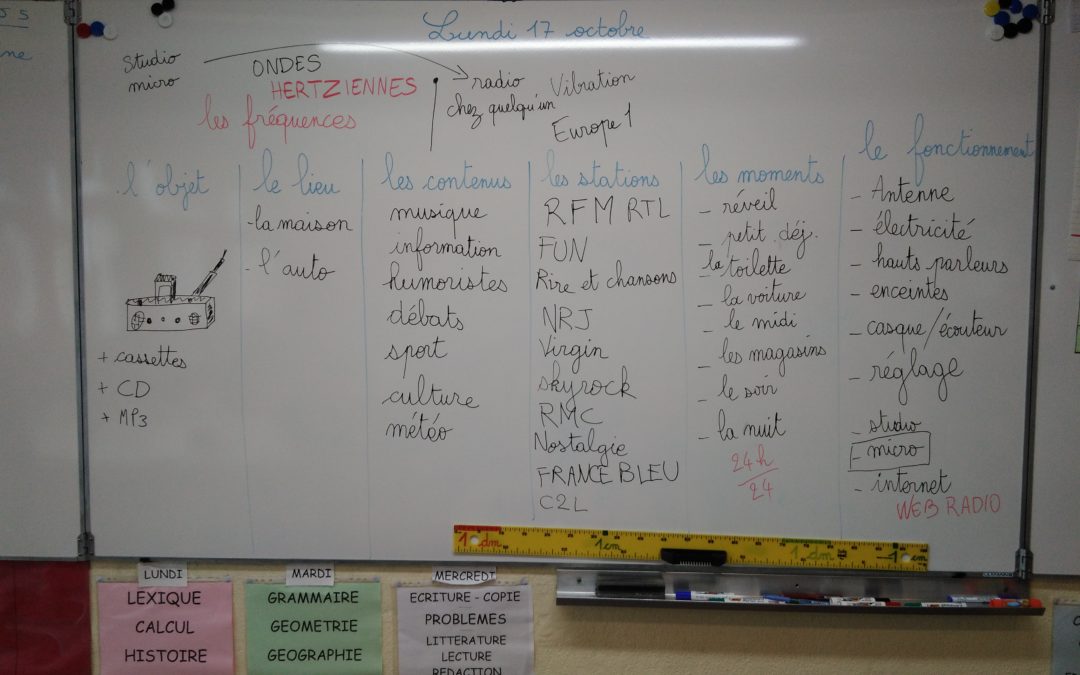 Lundi 17 octobre
Studio
micro
ONDES
HERTZIENNES
les fréquences
radio
chez quelqu'un
Vibration
Europe 1
l'objet
+ cassettes
+ CD
+ MP3
le lieu
- la maison
- l'auto
les contenus
musique
information
humoristes
débats
sport
culture
météo
les stations
RFM RTL
FUN
Rire et chansons
NRJ
Virgin
skyrock
RMC
Nostalgie
FRANCE BLEU
C2L
les moments
- réveil
- petit. déj.
- la toilette
- la voiture
- le midi
- les magasins
- le soir
- la nuit
24h
24
le fonctionnement
- Antenne
- électricité
- hauts parleurs
- enceintes
- casque/écouteur
- réglage
- studio
- micro
- internet
WEB RADIO
1 dm
1 cm
1 dm
1 cm
LUNDI
LEXIQUE
CALCUL
HISTOIRE
MARDI
GRAMMAIRE
GEOMETRIE
GEOGRAPHIE
MERCREDI
ECRITURE - COPIE
PROBLEMES
LITTERATURE
LECTURE
REDACTION